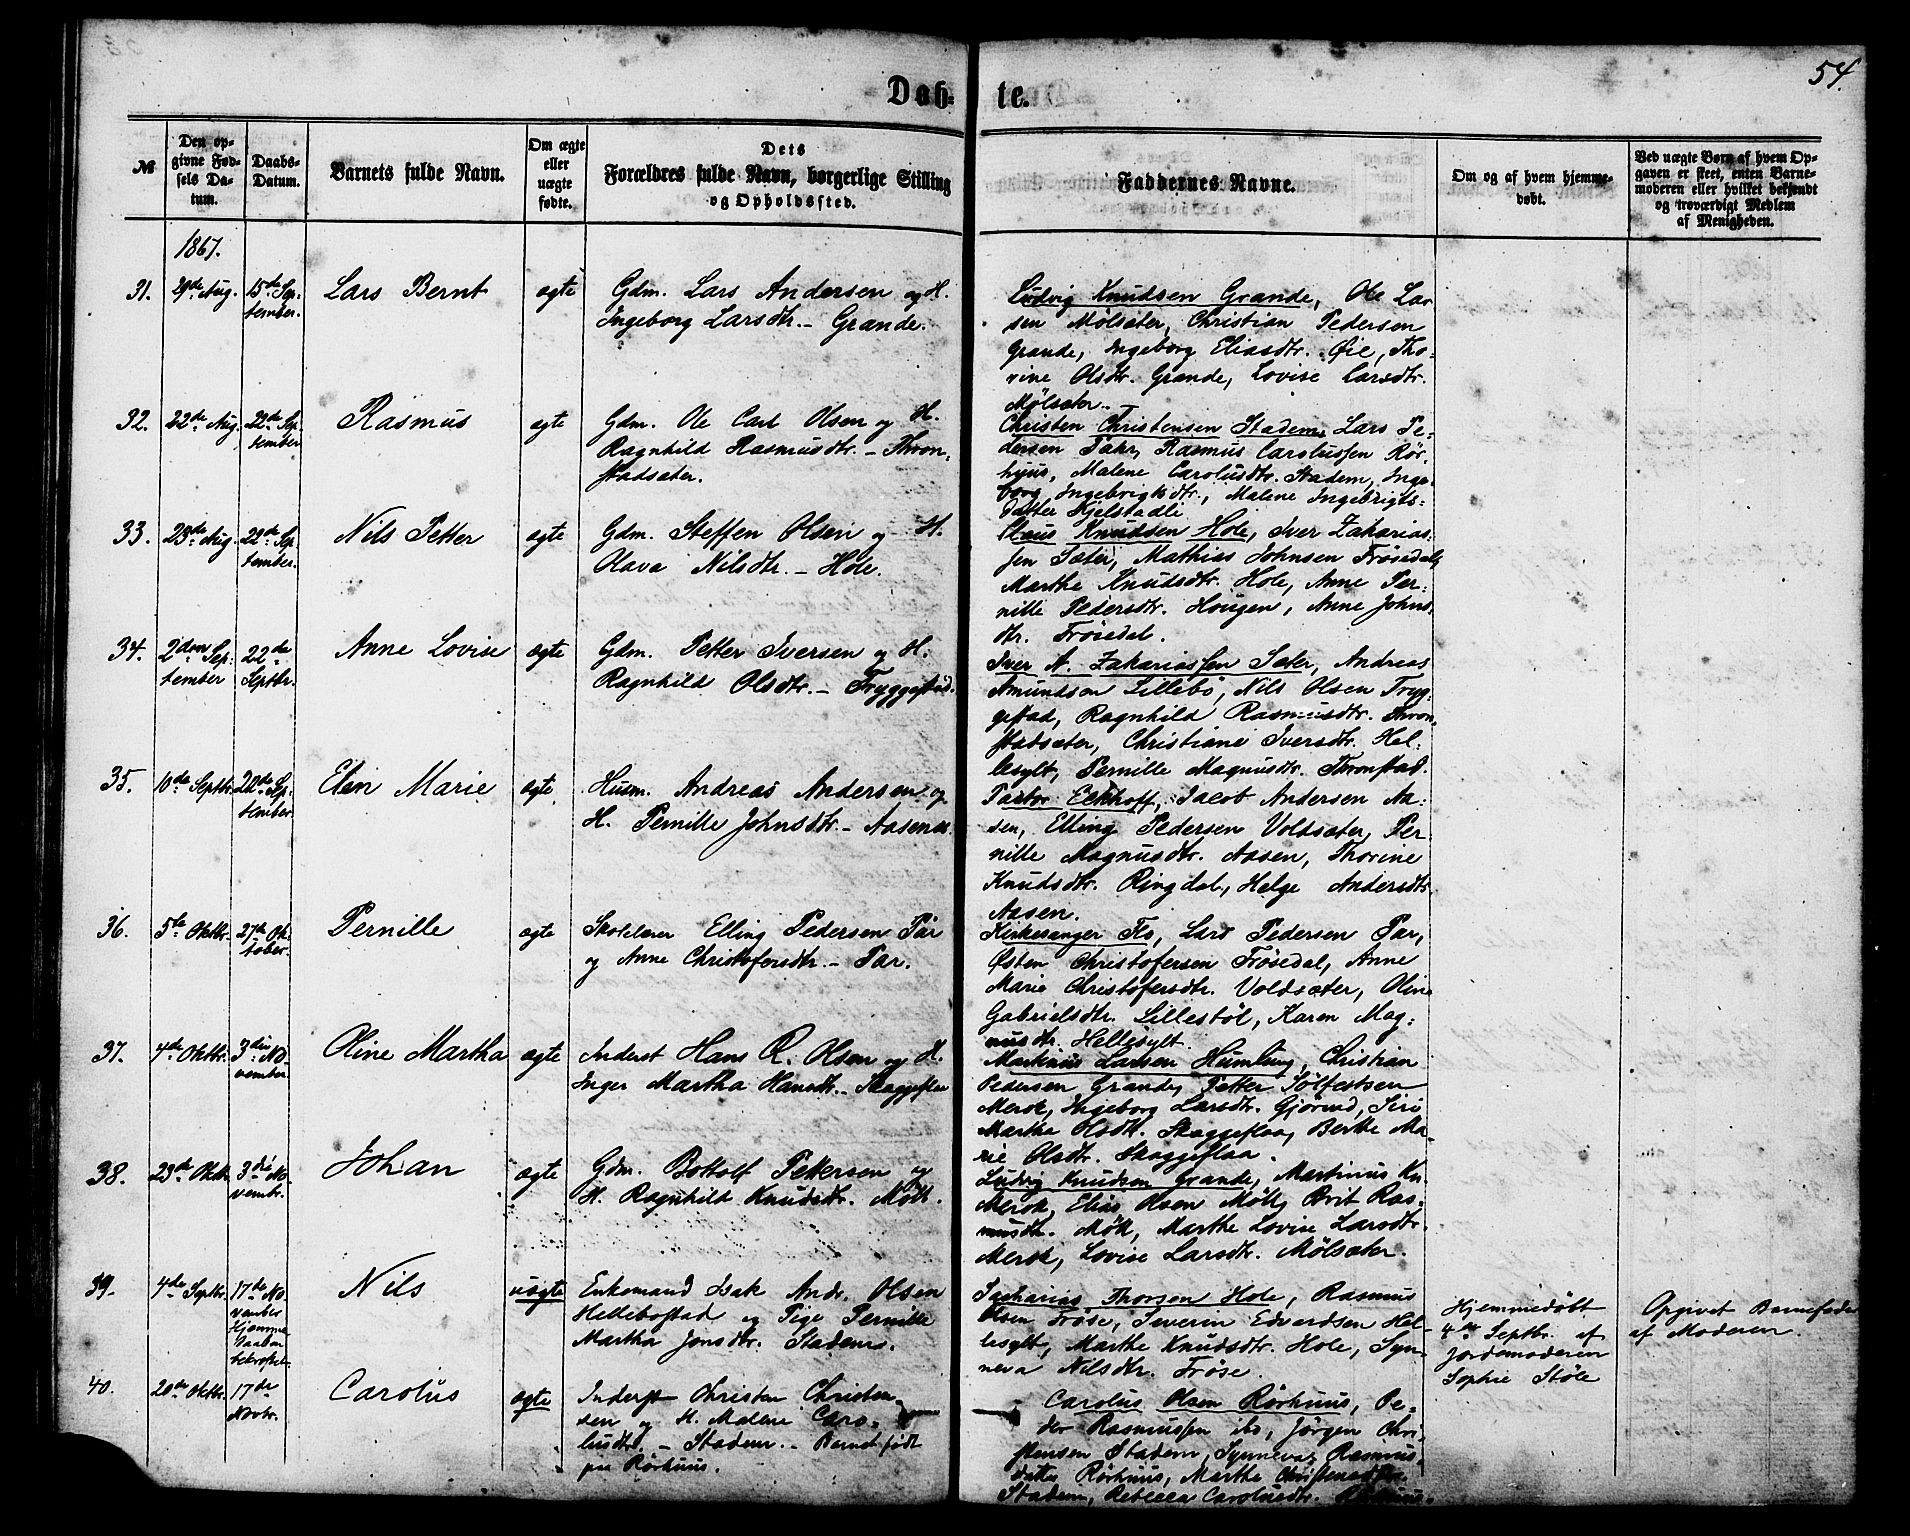 54.
Døb-
te.
№
Den op-
givne Fød-
sels Da-
tum.
Daabs-
Datum.
Barnets fulde Navn.
Om ægte
eller
uægte
fødte.
Dets
Forældres fulde Navn, borgerlige Stilling
og Opholdssted.
Faddernes Navne.
Om og af hvem hjemme-
døbt.
Ved uægte Børn af hvem Op-
gaven er skeet, enten Barne-
moderen eller hvilket bekjendt
og troværdigt Medlem
af Menigheden.
1867.
31.
29de Aug.
15de Sep-
tember.
Lars Bernt
ægte
Gdm. Lars Andersen og H.
Ingeborg Larsdtr. - Grande.
Ludvig Knudsen Grande, Ole Lar
sen Mølsæter, Christian Pedersen
Grande, Ingeborg Eliasdtr. Øie, Tho-
rine Olsdtr. Grande, Lovise Larsdtr.
Mølsæter.
32.
22de Aug.
22de Sep
tember
Rasmus
ægte
Gdm. Ole Carl Olsen og H.
Ragnhild Rasmusdtr. - Thron-
stadsæter.
Christen Christensen Stadem, Lars Pe-
dersen Rasmus Carolussen Rør-
huus, Malene Carolusdtr. Stadem, Inge-
borg Ingebrigtsdtr., Malene Ingebrigts-
datter Kjelstadli
33.
23de Aug.
22de Sep
tember.
Nils Petter
ægte
Gdm. Steffen Olsen og H.
Olava Nilsdtr. - Hole.
Claus Knudsen Hole, Iver Zakarias-
sen Sæter, Mathias Johnsen Frøsedal,
Marthe Knudsdtr. Hole, Anne Per-
nille Pedersdtr. Hougen, Anne Johns-
dtr. Frøsedal.
34.
2den Sep-
tember
22de
Septbr.
Anne Lovise
ægte
Gdm. Petter Iversen og H.
Ragnhild Olsdtr. - Tryggestad.
Iver A. Zakariassen Sæter, Andreas
Amundsen Lillebø, Nils Olsen Tryg-
gestad, Ragnhild Rasmusdtr. Thron-
stadsæter, Christiane Iversdtr. Hel-
lesylt, Pernille Magnusdtr. Thronstad.
35.
10de Septbr.
22de Sep-
tember
Elen Marie
ægte
Husm. Andreas Andersen og
H. Pernille Johnsdtr. - Aasene
Pastor Eckhoff, Jacob Andersen Aa-
sen, Elling Pedersen Voldsæter, Per
nille Magnusdtr. Aasen, Thorine
Knudsdtr. Ringdal, Helge Andersdtr
Aasen.
36.
5te Oktbr.
27de Ok-
tober.
Pernille
ægte
Skolelærer Elling Pedersen Par
og Anne Christofersdtr. - Par.
Kirkesanger Flo, Lars Pedersen Par,
Østen Christofersen Frøsedal, Anne
Marie Christofersdtr. Voldsæter, Oline
Gabrielsdtr. Lillestøl, Karen Mag-
nusdtr. Hellesylt.
37.
4de Oktbr.
3die No
vember.
Oline Martha
ægte
Inderst Hans R. Olsen og H.
Inger Martha Hansdtr. - Skaggeflaa
Martinus Larsen Humlung, Christian
Pedersen Grande, Petter Sølfestsen
Merok, Ingeborg Larsdtr. Gjørud, Siri
Martha Olsdtr. Skaggeflaa, Berthe Ma-
rie Olsdtr. Skaggeflaa.
38.
23de Oktbr.
3die No-
vembr.
Johan
ægte
Gdm. Bottolf Pettersen og
H. Ragnhild Knudsdtr. Møll.
Ludvig Knudsen Grande, Martinus Kn.
Merok, Elias Olsen Møll, Brit Ras-
musdtr. Møll, Marthe Lovise Larsdtr.
Merok, Lovise Larsdtr. Mølsæter.
39.
4de Septbr.
17de No
vember
Hjemme
Daaben
bekræftet.
Nils
uægte
Enkemand Isak Andr. Olsen
Hellebostad og Pige Pernille
Martha Jonsdtr. Stadem.
Sacharias Thorsen Hole, Rasmus
Olsen Frøse, Severin Edvardsen Hel-
lesylt, Marthe Knudsdtr. Hole, Syn-
neva Nilsdtr. Frøse.
Hjemmedøbt
4de Septbr. af
Jordemoderen
Sophie Støle
Opgivet Barnefader
af Moderen.
40.
20de Oktbr.
17de
Novbr.
Carolus
ægte
Inderst Christen Christen-
sen og H. Malene Caro-
lusdtr. - Stadem. - Barnet født
paa Rørhuus.
Carolus Olsen Rørhuus, Pe-
der Rasmussen ibs, Jørgen Chri-
stensen Stadem, Synneva Rasmus-
datter Rørhuus, Marthe Christensdtr.
Stadem, Rebecca Carolusdtr. Rørhuus.